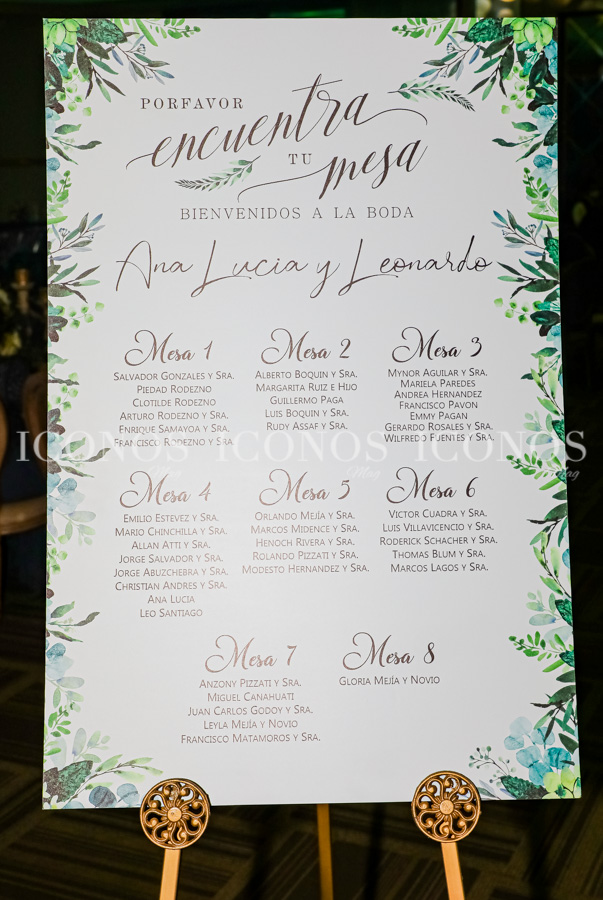 PORFAVOR
encuentra
TU
mesa
BIENVENIDOS A LA BODA
Ana Lucia y Leonardo
Mesa 1
Salvador Gonzales y Sra.
Piedad Rodezno
Clotilde Rodezno
Arturo Rodezno y Sra.
Enrique Samayoa y Sra.
Francisco Rodezno y Sra.
Mesa 2
Alberto Boquin y Sra.
Margarita Ruiz e Hijo
Guillermo Paga
Luis Boquin y Sra.
Rudy Assaf y Sra.
Mesa 3
Mynor Aguilar y Sra.
Mariela Paredes
Andrea Hernandez
Francisco Pavon
Emmy Pagan
Gerardo Rosales y Sra.
Wilfredo Fuentes y Sra.
ICONOS ICONOS ICONOS
Mag Mag Mag
Mesa 4
Emilio Estevez y Sra.
Mario Chinchilla y Sra.
Allan Atti y Sra.
Jorge Salvador y Sra.
Jorge Abuzchebra y Sra.
Christian Andres y Sra.
Ana Lucia
Leo Santiago
Mesa 5
Orlando Mejía y Sra.
Marcos Midence y Sra.
Henoch Rivera y Sra.
Rolando Pizzati y Sra.
Modesto Hernandez y Sra.
Mesa 6
Victor Cuadra y Sra.
Luis Villavicencio y Sra.
Roderick Schacher y Sra.
Thomas Blum y Sra.
Marcos Lagos y Sra.
Mesa 7
Anzony Pizzati y Sra.
Miguel Canahuati
Juan Carlos Godoy y Sra.
Leyla Mejía y Novio
Francisco Matamoros y Sra.
Mesa 8
Gloria Mejía y Novio